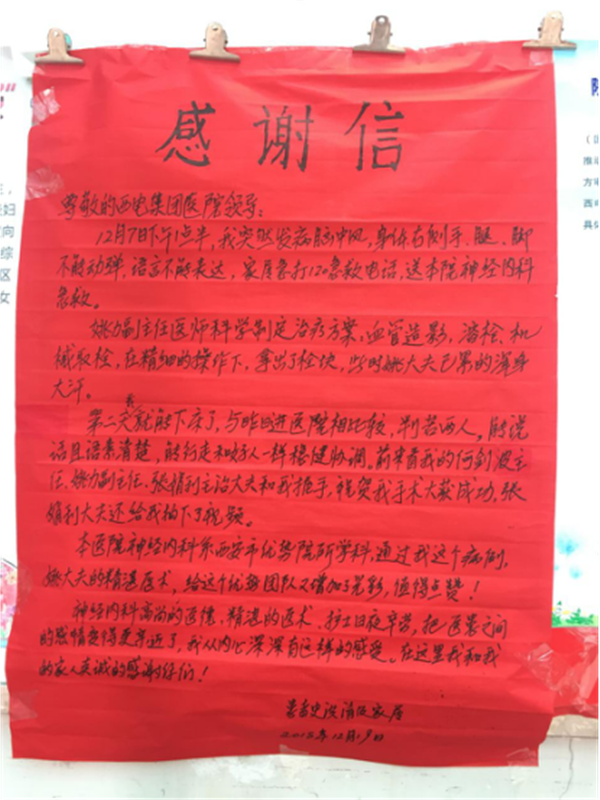 感谢信
尊敬的西电集团医院领导:
12月7日下午1点半,我突然发病脑中风,身体右侧手、腿、脚
不能动弹,语言不能表达,家属急打120急救电话,送本院神经内科
急救。
姚力副主任医师科学制定治疗方案:血管造影,溶栓、机
械取栓,在精细的操作下,拿出了栓块,此时姚大夫已累的浑身
大汗。
第二天我就能下床了,与昨日进医院相比较,判若两人。能说
话且语素清楚,能行走和好人一样稳健协调。前来看我的何剑波主
任、姚力副主任、张娟利主治大夫和我握手,祝贺我手术大获成功,张
娟利大夫还给我拍下了视频。
本医院神经内科系西安市优势院所学科,通过我这个病例,
姚大夫的精湛医术,给这个优势团队又增加了光彩,值得点赞!
神经内科高尚的医德、精湛的医术、护士日夜辛劳,把医患之间
的感情变得更亲近了,我从内心深深有这样的感受。在这里我和我
的家人真诚的感谢你们!
患者史洪清及家属
12月19日